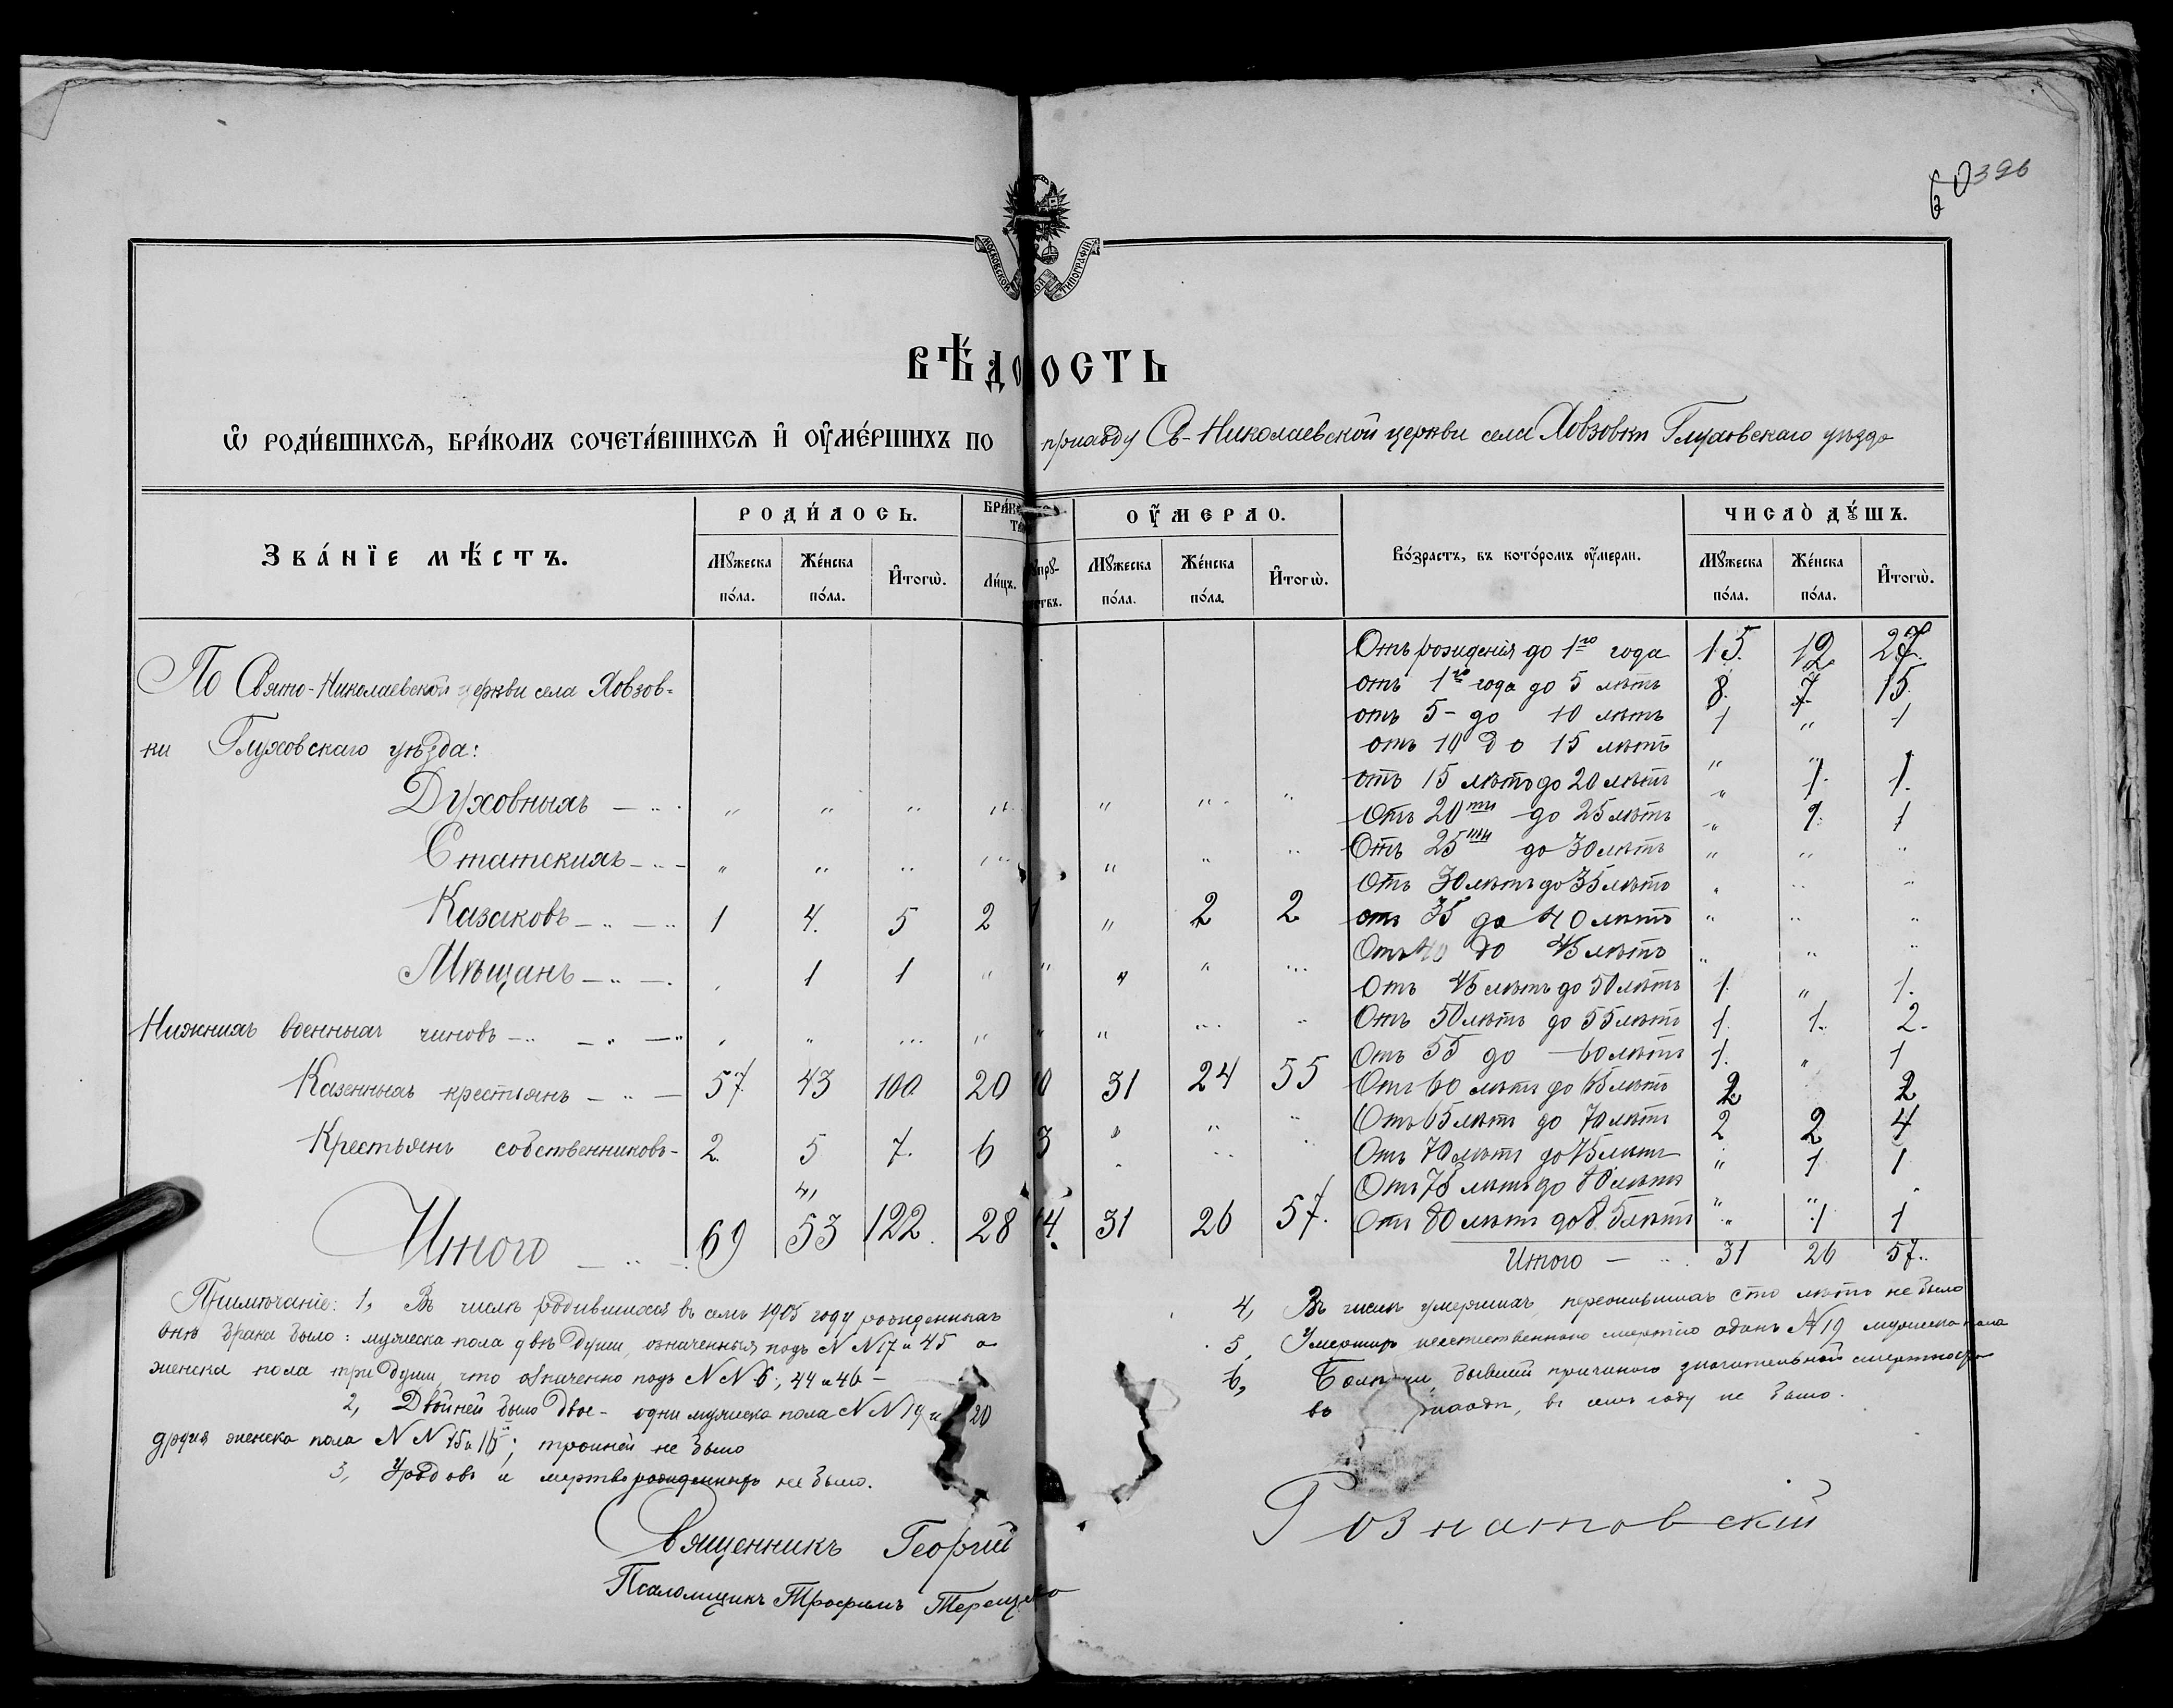 60 396
МОСКОВСКОЙ ТИПОГРАФІИ
ВѢ́ДОСТЬ
Ѡ҆ РОДИ́ВШИХСѦ, БРА́КОМЪ СОЧЕТА́ВШИХСѦ И҆ ОУ҆МЕ́РШИХЪ ПО приходу Св-Николаевской церкви села Ховзовки Глуховскаго уѣзда
ЗВА́НІЕ МѢ́СТЪ. РОДИ́ЛОСЬ. ОУ҆МЕРЛО. Во́зрастъ, въ кото́ромъ оу҆мерли. ЧИСЛО̀ ДꙊ́ШЪ.
Мꙋ́жеска по́ла. Же́нска по́ла. И҆тогѡ̀. Ли́цъ. Мꙋ́жеска по́ла. Же́нска по́ла. И҆тогѡ̀. Мꙋ́жеска по́ла. Же́нска по́ла. И҆тогѡ̀.
Отъ рожденія до 1го года 15. 12. 27.
По Свято-Николаевской церкви села Ховзов-
отъ 1го года до 5 лѣтъ 8. 7. 15.
отъ 5- до 10 лѣтъ 1 " 1
ки Глуховскаго уѣзда:
отъ 10 до 15 лѣтъ " "
отъ 15 лѣтъ до 20 лѣтъ " 1. 1.
Духовныхъ — " . " " " " " " "
Отъ 20ти до 25 лѣтъ " 1. 1
Отъ 25ти до 30 лѣтъ " " "
Статскихъ - " - " " " " " " "
Отъ 30 лѣтъ до 35 лѣтъ " " "
Казаковъ - " - " 1 4. 5 2 1 " 2 2
отъ 35 до 40 лѣтъ " " "
Отъ 40 до 45 лѣтъ " " "
Мѣщанъ - " - . 1 1 " " " " "
Отъ 45 лѣтъ до 50 лѣтъ 1. " 1.
Нижнихъ военныхъ чиновъ - " - " - " " " " " " " " "
Отъ 50 лѣтъ до 55 лѣтъ 1. 1. 2.
Отъ 55 до - 60 лѣтъ 1. " 1
Казенныхъ крестьянъ - " - 57 43 100 20 10 31 24 55
Отъ 60 лѣтъ до 65 лѣтъ 2 2
Отъ 65 лѣтъ до 70 лѣтъ 2 2 4
Крестьянъ собственниковъ - 2. 5 7. 6 3 " " "
Отъ 70 лѣтъ до 75 лѣтъ " 1 1
Отъ 75 лѣтъ до 80 лѣтъ " " "
Итого - " - 69 53 122. 28 14 31 26 57.
Отъ 80 лѣтъ до 85 лѣтъ " 1 1
Итого - " . 31 26 57.
Примѣчаніе: 1, Въ числѣ родившихся въ семъ 1905 году рожденныхъ
внѣ брака было: мужеска пола двѣ души, означенныя подъ N N 17 и 45 а
женска пола три души, что означенно подъ N N 6, 44 и 46 -
2, Двойней было двое - одни мужеска пола N N 19 и 20
другія женска пола N N 15 и 16; тройней не было
3, Уродовъ и мертворожденныхъ не было.
4, Въ числѣ умершихъ, пережившихъ сто лѣтъ не было
5, Умершихъ неестественною смертію одинъ N 19 мужеска пола
6, бывшей причиною значительной смертности
въ приходѣ, въ семъ году не было.
Священникъ Георгій Рознатовскій
Псаломщикъ Трофимъ Терещенко